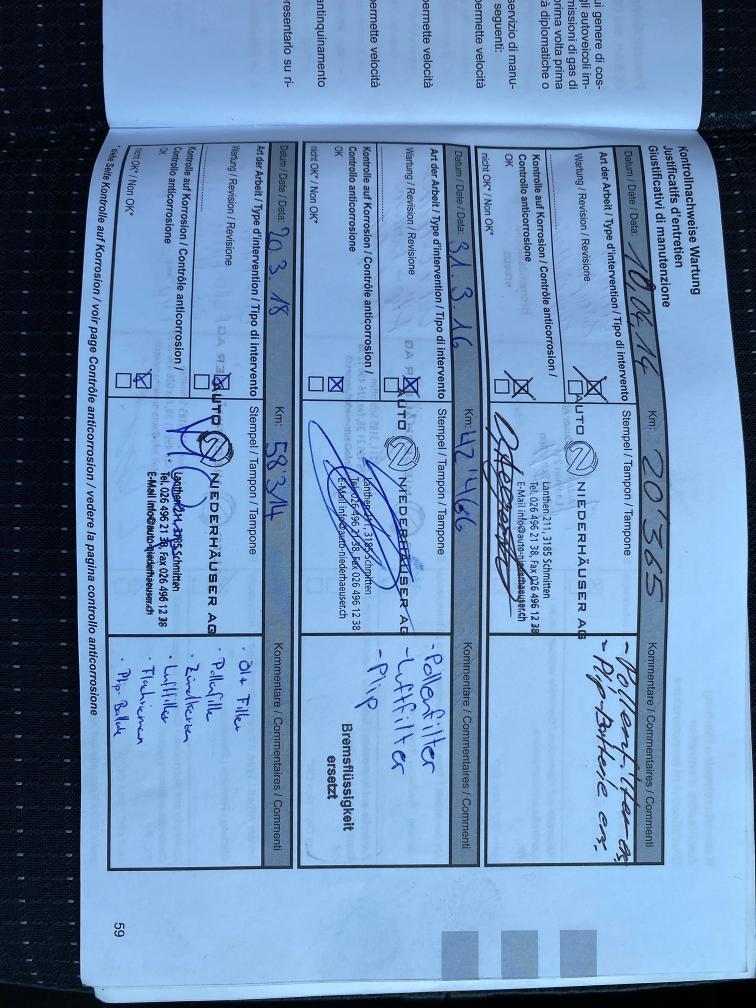 ui genere di cos-
gli autoveicoli im-
missioni di gas di
prima volta prima
à diplomatiche o
servizio di manu-
seguenti:
permette velocità
permette velocità
permette velocità
antinquinamento
resentarlo su ri-
Kontrollnachweise Wartung
Justificatifs d'entretien
Giustificativi di manutenzione
Datum / Date / Data: 10.04.14 Km: 20'365 Kommentare / Commentaires / Commenti
Art der Arbeit / Type d'intervention / Tipo di intervento Stempel / Tampon / Tampone
Wartung / Revision / Revisione
Kontrolle auf Korrosion / Contrôle anticorrosion /
Controllo anticorrosione
OK
nicht OK* / Non OK*
AUTO NIEDERHÄUSER AG
Lanthen 211, 3185 Schmitten
Tel. 026 496 21 38, Fax 026 496 12 38
E-Mail info@auto-niederhaeuser.ch
- Pollenfilter es.
- Plip-Batterie es.
Datum / Date / Data: 31.3.16 Km: 42'466 Kommentare / Commentaires / Commenti
Art der Arbeit / Type d'intervention / Tipo di intervento Stempel / Tampon / Tampone
Wartung / Revision / Revisione
Kontrolle auf Korrosion / Contrôle anticorrosion /
Controllo anticorrosione
OK
nicht OK* / Non OK*
AUTO NIEDERHÄUSER AG
Lanthen 211, 3185 Schmitten
Tel. 026 496 21 38, Fax 026 496 12 38
E-Mail info@auto-niederhaeuser.ch
- Pollenfilter
- Luftfilter
- Plip
Bremsflüssigkeit
ersetzt
Datum / Date / Data: 20.3.18 Km: 58'314 Kommentare / Commentaires / Commenti
Art der Arbeit / Type d'intervention / Tipo di intervento Stempel / Tampon / Tampone
Wartung / Revision / Revisione
Kontrolle auf Korrosion / Contrôle anticorrosion /
Controllo anticorrosione
OK
nicht OK* / Non OK*
AUTO NIEDERHÄUSER AG
Lanthen 211, 3185 Schmitten
Tel. 026 496 21 38, Fax 026 496 12 38
E-Mail info@auto-niederhaeuser.ch
· Öl + Filter
· Pollenfilter
· Zündkerzen
· Luftfilter
· Flachriemen
· Plip
* siehe Seite Kontrolle auf Korrosion / voir page Contrôle anticorrosion / vedere la pagina controllo anticorrosione
59